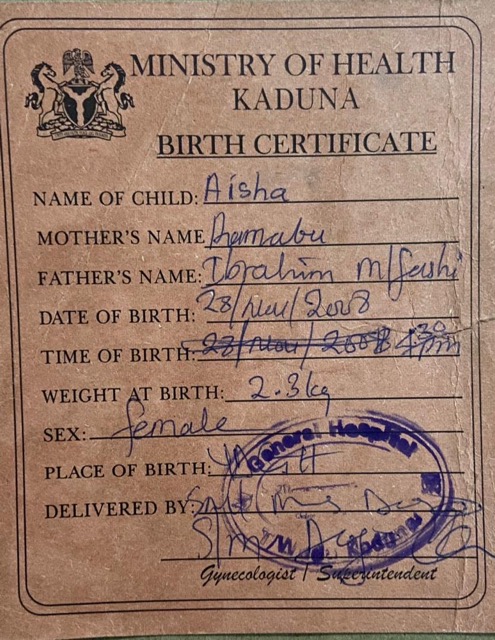 MINISTRY OF HEALTH
KADUNA
BIRTH CERTIFICATE
NAME OF CHILD: Aisha
MOTHER'S NAME Ramabu
FATHER'S NAME: Ibrahim M/Gashi
DATE OF BIRTH: 28/Nov/2008
TIME OF BIRTH: 28/Nov/2008 4:30pm
WEIGHT AT BIRTH: 2.3kg
SEX: female
PLACE OF BIRTH:
General Hospital
DELIVERED BY:
Kaduna
Gynecologist / Superintendent